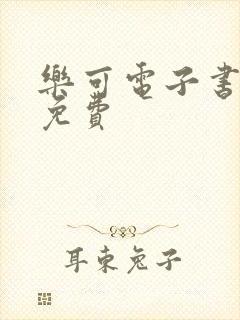 樂可電子書
免費
耳東兔子